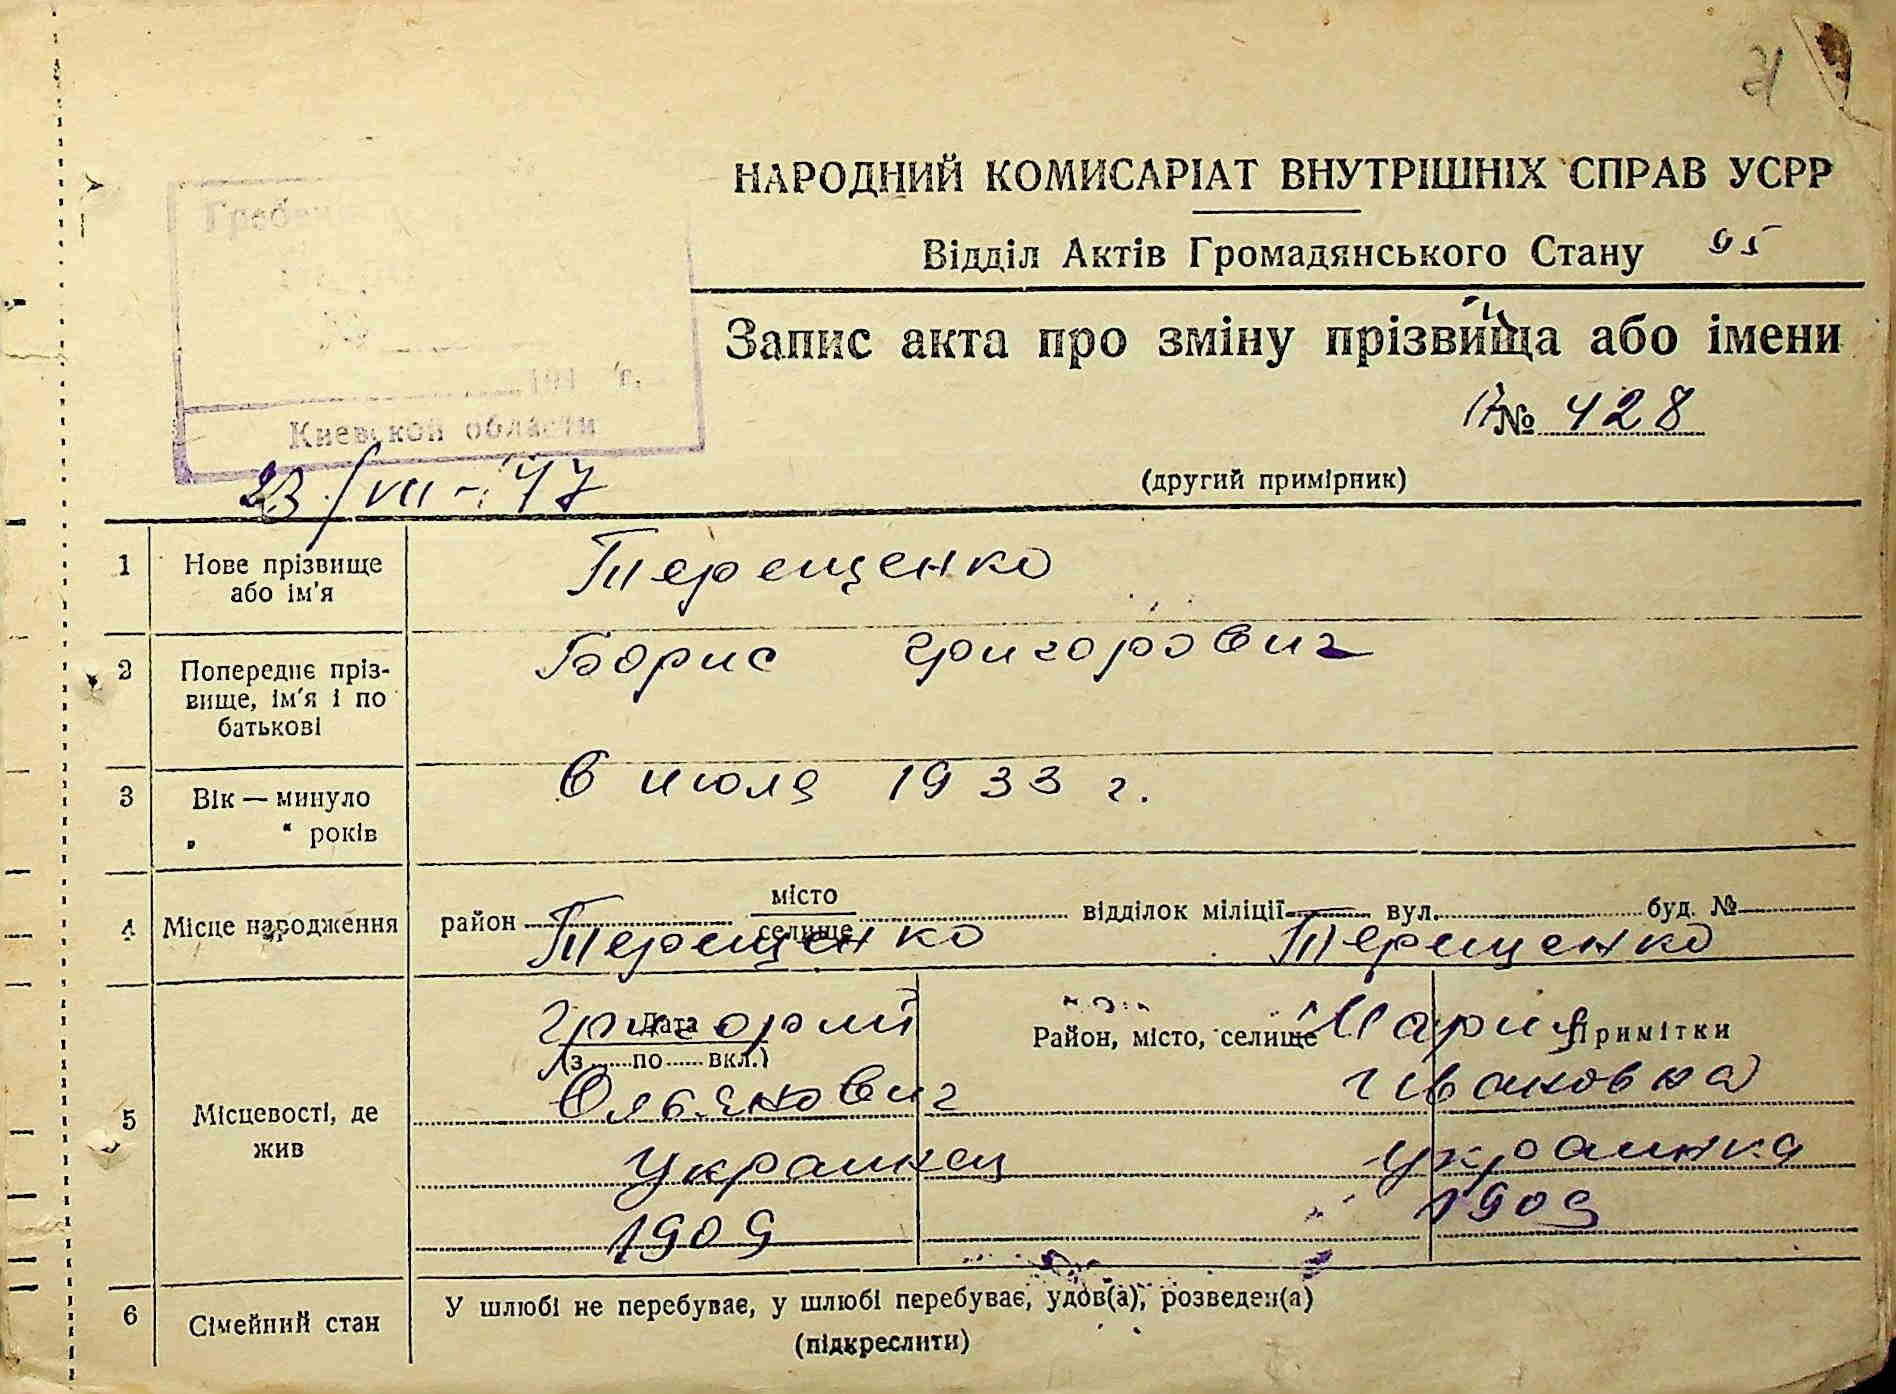 71
НАРОДНИЙ КОМИСАРІАТ ВНУТРІШНІХ СПРАВ УСРР
Відділ Актів Громадянського Стану 95
Запис акта про зміну прізвища або імени
№ 428
(другий примірник)
194 г.
Киевской области
23/VII - 47
1 Нове прізвище або ім'я Терещенко
2 Попереднє пріз-
вище, ім'я і по
батькові
Борис Григорович
3 Вік — минуло
„ “ років
6 июля 1933 г.
4 Місце народження район місто селище відділок міліції вул. буд. №
Терещенко Терещенко
5 Місцевості, де
жив
Дата
(з ...... по ...... вкл.)
Район, місто, селище
Примітки
Григорий Мария
Ивановна
Украинец украинка
1909 1909
6 Сімейний стан У шлюбі не перебуває, у шлюбі перебуває, удов(а), розведен(а)
(підкреслити)